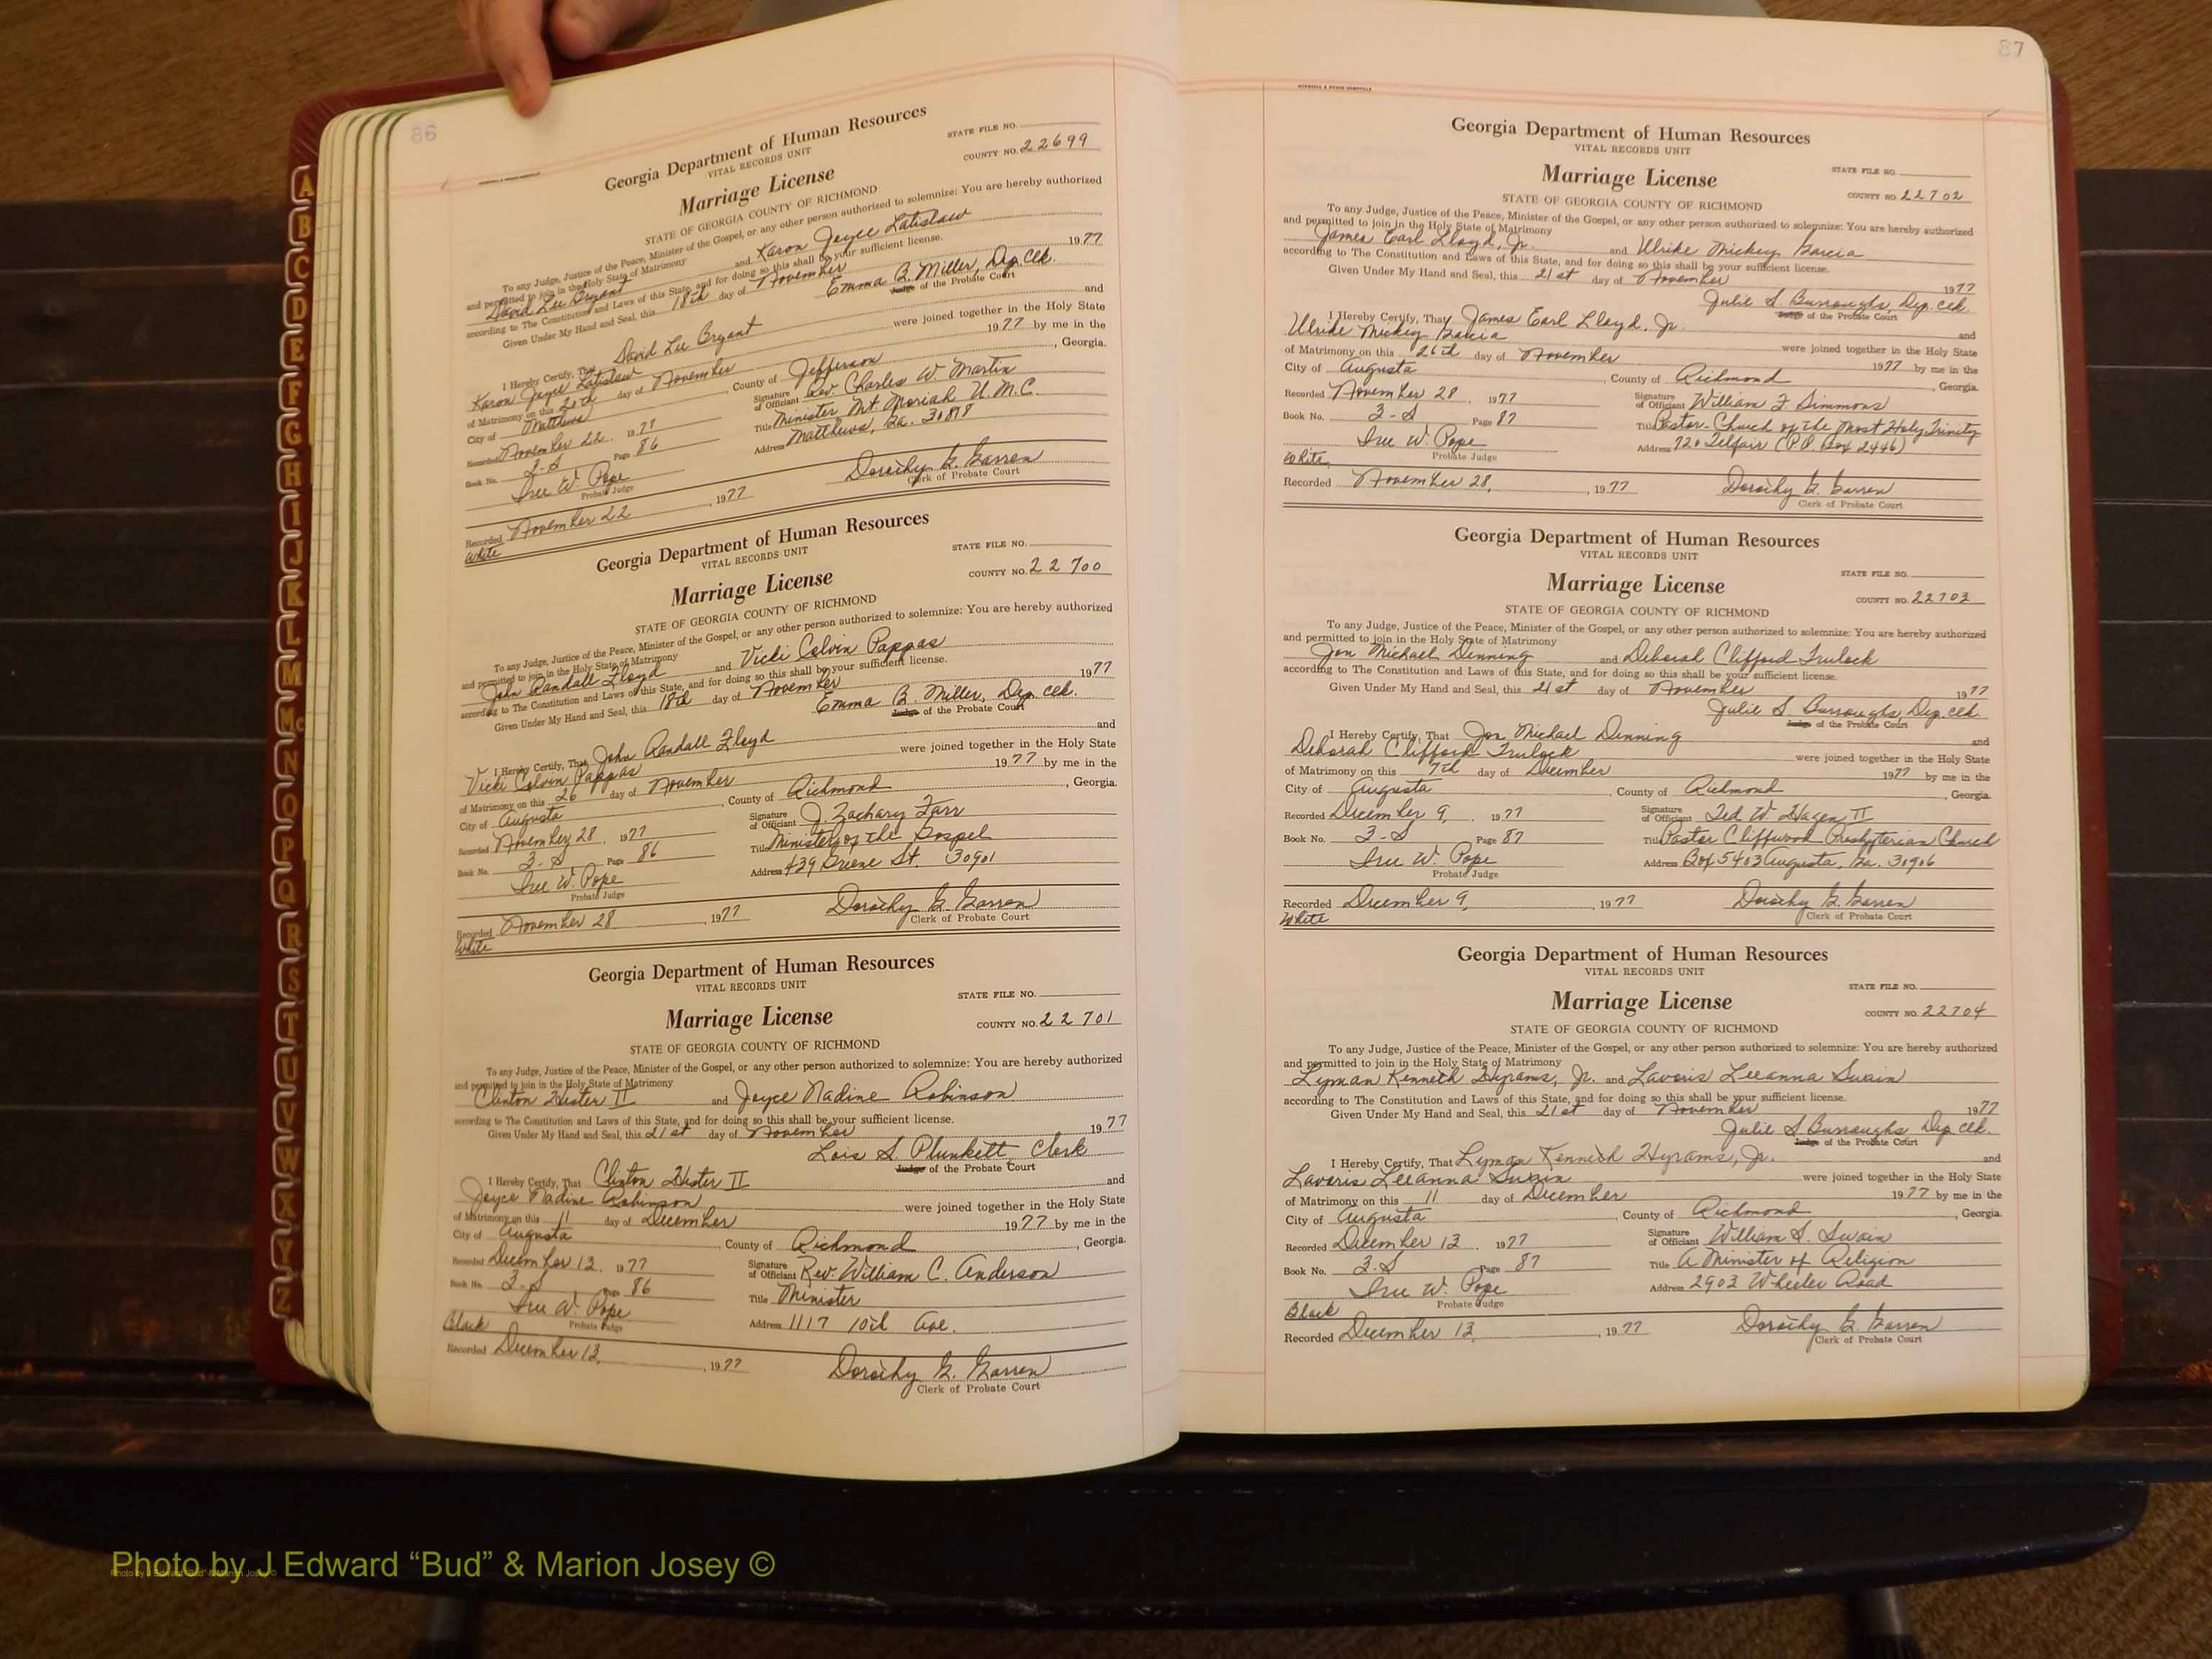 86
Georgia Department of Human Resources
VITAL RECORDS UNIT
STATE FILE NO.
Marriage License
COUNTY NO. 22699
STATE OF GEORGIA COUNTY OF RICHMOND
To any Judge, Justice of the Peace, Minister of the Gospel, or any other person authorized to solemnize: You are hereby authorized
and permitted to join in the Holy State of Matrimony
David Lee Bryant and Karon Joyce Latislaw
according to The Constitution and Laws of this State, and for doing so this shall be your sufficient license.
Given Under My Hand and Seal, this 18th day of November 1977
Emma B. Miller, Dep. Clk.
Judge of the Probate Court
I Hereby Certify, That David Lee Bryant and
Karon Joyce Latislaw were joined together in the Holy State
of Matrimony on this 20th day of November 1977 by me in the
City of Matthews, County of Jefferson, Georgia.
Recorded November 22, 1977 Signature of Officiant Rev. Charles W. Martin
Book No. 3-S Page 86 Title Minister Mt. Moriah U.M.C.
Iree W. Pope Address Matthews, Ga. 30818
Probate Judge
Recorded November 22, 1977 Dorothy G. Garren
White Clerk of Probate Court
Georgia Department of Human Resources
VITAL RECORDS UNIT
STATE FILE NO.
Marriage License
COUNTY NO. 22700
STATE OF GEORGIA COUNTY OF RICHMOND
To any Judge, Justice of the Peace, Minister of the Gospel, or any other person authorized to solemnize: You are hereby authorized
and permitted to join in the Holy State of Matrimony
John Randall Floyd and Vicki Colvin Pappas
according to The Constitution and Laws of this State, and for doing so this shall be your sufficient license.
Given Under My Hand and Seal, this 18th day of November 1977
Emma B. Miller, Dep. Clk.
Judge of the Probate Court
I Hereby Certify, That John Randall Floyd and
Vicki Colvin Pappas were joined together in the Holy State
of Matrimony on this 26 day of November 1977 by me in the
City of Augusta, County of Richmond, Georgia.
Recorded November 28, 1977 Signature of Officiant J. Zachary Farr
Book No. 3-S Page 86 Title Minister of the Gospel
Iree W. Pope Address 439 Greene St. 30901
Probate Judge
Recorded November 28, 1977 Dorothy G. Garren
White Clerk of Probate Court
Georgia Department of Human Resources
VITAL RECORDS UNIT
STATE FILE NO.
Marriage License
COUNTY NO. 22701
STATE OF GEORGIA COUNTY OF RICHMOND
To any Judge, Justice of the Peace, Minister of the Gospel, or any other person authorized to solemnize: You are hereby authorized
and permitted to join in the Holy State of Matrimony
Clinton Hester II and Joyce Nadine Robinson
according to The Constitution and Laws of this State, and for doing so this shall be your sufficient license.
Given Under My Hand and Seal, this 21st day of November 1977
Lois S. Plunkett, Clerk
Judge of the Probate Court
I Hereby Certify, That Clinton Hester II and
Joyce Nadine Robinson were joined together in the Holy State
of Matrimony on this 11 day of December 1977 by me in the
City of Augusta, County of Richmond, Georgia.
Recorded December 13, 1977 Signature of Officiant Rev. William C. Anderson
Book No. 3-S Page 86 Title Minister
Iree W. Pope Address 1117 10th Ave.
Black Probate Judge
Recorded December 13, 1977 Dorothy G. Garren
Clerk of Probate Court
87
Georgia Department of Human Resources
VITAL RECORDS UNIT
STATE FILE NO.
Marriage License
COUNTY NO. 22702
STATE OF GEORGIA COUNTY OF RICHMOND
To any Judge, Justice of the Peace, Minister of the Gospel, or any other person authorized to solemnize: You are hereby authorized
and permitted to join in the Holy State of Matrimony
James Earl Lloyd, Jr. and Ulrike Mickey Garcia
according to The Constitution and Laws of this State, and for doing so this shall be your sufficient license.
Given Under My Hand and Seal, this 21st day of November 1977
Julie S. Burroughs, Dep. Clk.
Judge of the Probate Court
I Hereby Certify, That James Earl Lloyd, Jr. and
Ulrike Mickey Garcia were joined together in the Holy State
of Matrimony on this 26th day of November 1977 by me in the
City of Augusta, County of Richmond, Georgia.
Recorded November 28, 1977 Signature of Officiant William F. Simmons
Book No. 3-S Page 87 Title Pastor-Church of the Most Holy Trinity
Iree W. Pope Address 720 Telfair (P.O. Box 2446)
White Probate Judge
Recorded November 28, 1977 Dorothy G. Garren
Clerk of Probate Court
Georgia Department of Human Resources
VITAL RECORDS UNIT
STATE FILE NO.
Marriage License
COUNTY NO. 22703
STATE OF GEORGIA COUNTY OF RICHMOND
To any Judge, Justice of the Peace, Minister of the Gospel, or any other person authorized to solemnize: You are hereby authorized
and permitted to join in the Holy State of Matrimony
Jon Michael Dinning and Deborah Clifford Trulock
according to The Constitution and Laws of this State, and for doing so this shall be your sufficient license.
Given Under My Hand and Seal, this 21st day of November 1977
Julie S Burroughs, Dep. Clk
Judge of the Probate Court
I Hereby Certify, That Jon Michael Dinning and
Deborah Clifford Trulock were joined together in the Holy State
of Matrimony on this 7th day of December 1977 by me in the
City of Augusta, County of Richmond, Georgia.
Recorded December 9, 1977 Signature of Officiant Ted W. Hagen II
Book No. 3-S Page 87 Title Pastor Cliffwood Presbyterian Church
Iree W. Pope Address Box 5403 Augusta, Ga. 30906
Probate Judge
Recorded December 9, 1977 Dorothy G. Garren
White Clerk of Probate Court
Georgia Department of Human Resources
VITAL RECORDS UNIT
STATE FILE NO.
Marriage License
COUNTY NO. 22704
STATE OF GEORGIA COUNTY OF RICHMOND
To any Judge, Justice of the Peace, Minister of the Gospel, or any other person authorized to solemnize: You are hereby authorized
and permitted to join in the Holy State of Matrimony
Lyman Kenneth Hyrams, Jr. and Lavoris Leeanna Swain
according to The Constitution and Laws of this State, and for doing so this shall be your sufficient license.
Given Under My Hand and Seal, this 21st day of November 1977
Julie S Burroughs Dep. Clk.
Judge of the Probate Court
I Hereby Certify, That Lyman Kenneth Hyrams, Jr. and
Lavoris Leeanna Swain were joined together in the Holy State
of Matrimony on this 11 day of December 1977 by me in the
City of Augusta, County of Richmond, Georgia.
Recorded December 13, 1977 Signature of Officiant William S. Swain
Book No. 3-S Page 87 Title A Minister of Religion
Iree W. Pope Address 2903 Wheeler Road
Black Probate Judge
Recorded December 13, 1977 Dorothy G. Garren
Clerk of Probate Court
A
B
C
D
E
F
G
H
I
J
K
L
M
Mc
N
O
P
Q
R
S
T
U
V
W
X
Y
Z
Photo by J Edward “Bud” & Marion Josey ©
Photo by J Edward "Bud" & Marion Josey ©